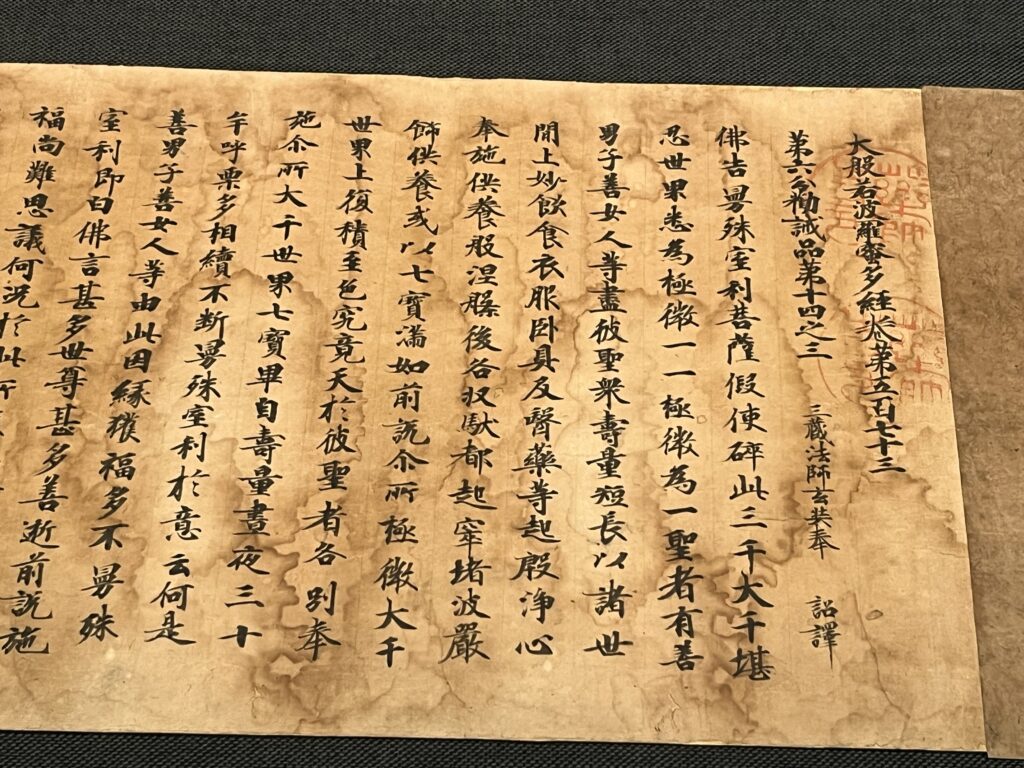 大般若波羅蜜多經卷第五百七十三
第六分勸誡品第十四之三 三藏法師玄奘奉 詔譯
佛告曼殊室利菩薩假使碎此三千大千堪
忍世界悉為極微一一極微為一聖者有善
男子善女人等盡彼聖衆壽量短長以諸世
間上妙飲食衣服卧具及醫藥等起殷淨心
奉施供養般涅槃後各収馱都起窣堵波嚴
飾供養或以七寶滿如前說尒所極微大千
世界上復積至色究竟天於彼聖者各別奉
施尒所大千世界七寶畢自壽量晝夜三十
牟呼栗多相續不斷曼殊室利於意云何是
善男子善女人等由此因緣獲福多不曼殊
室利即白佛言甚多世尊甚多善逝前說施
福尚難思議何況於此所